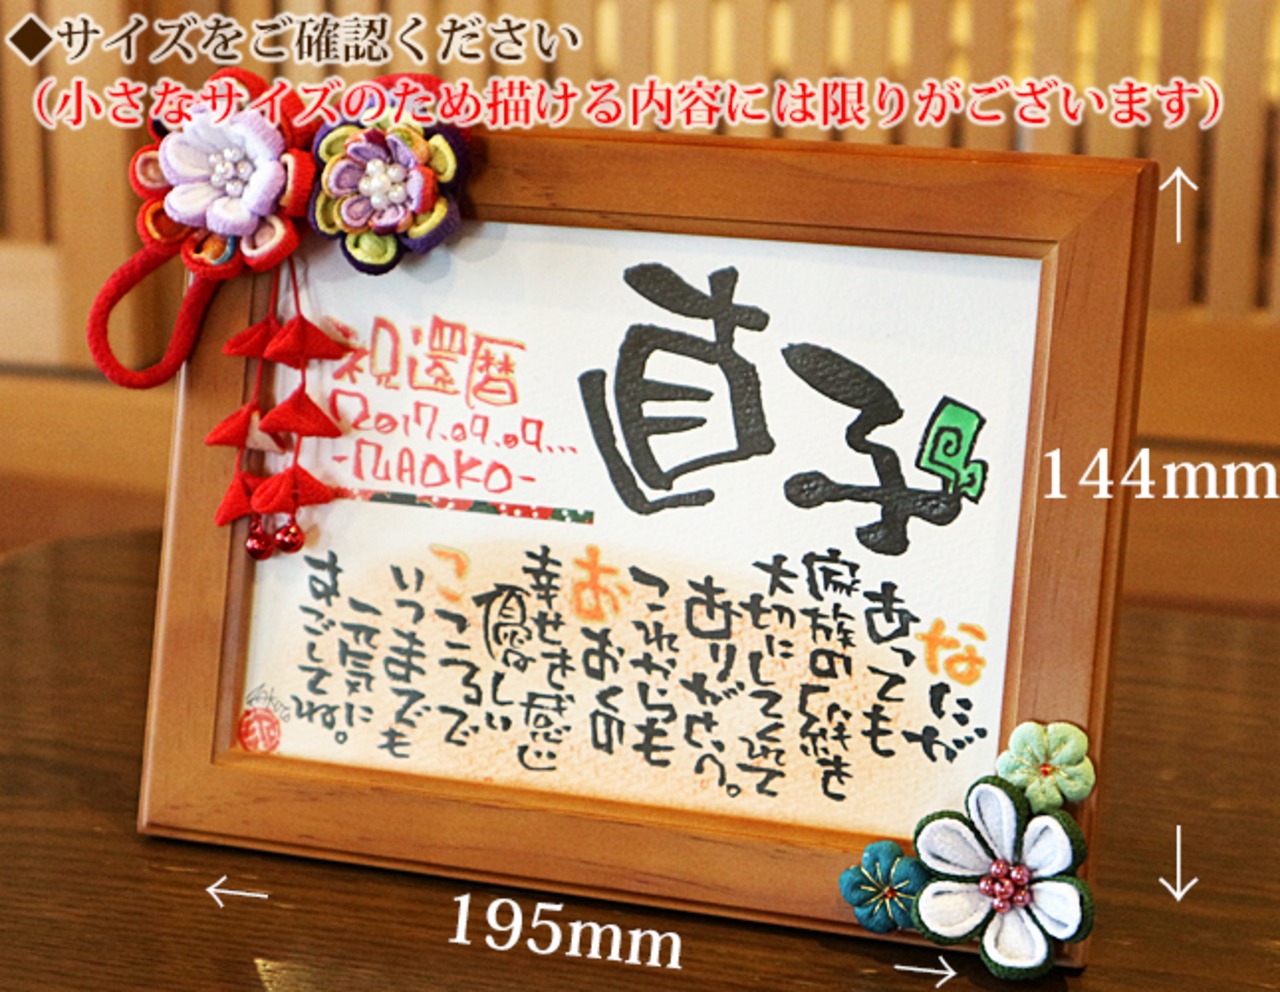 ◆サイズをご確認ください
（小さなサイズのため描ける内容には限りがございます）
直子
祝還暦
2017.09.09...
-NAOKO-
なにが
あっても
家族の絆を
大切にしてくれて
ありがとう。
これからも
おおくの
幸せを感じ
優しい
こころで
いつまでも
元気に
すごしてね。
144mm
195mm